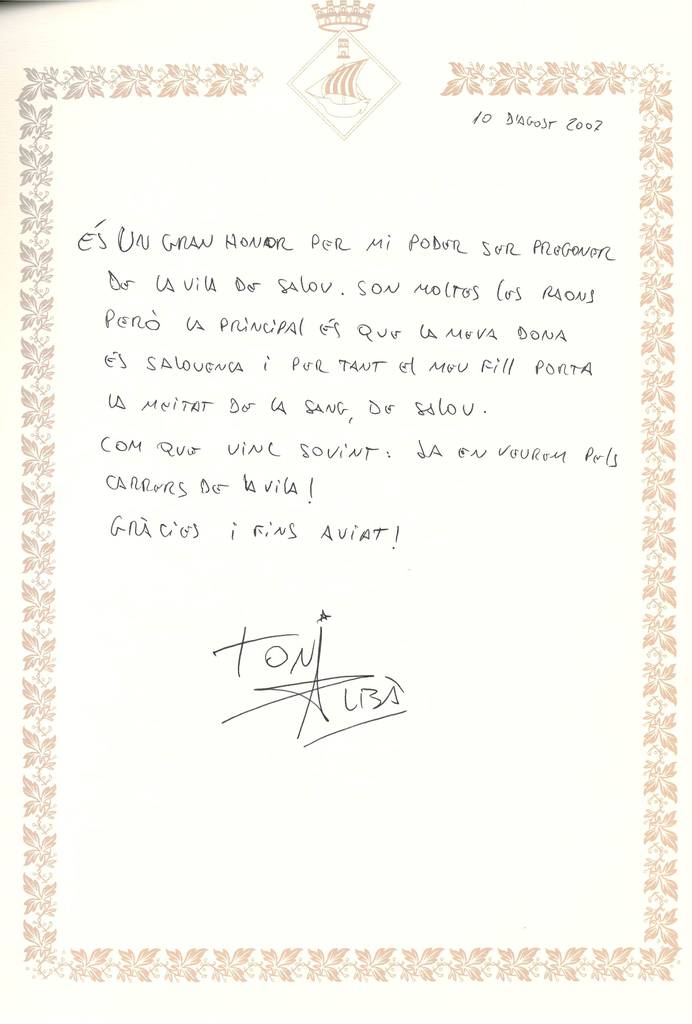 10 D'AGOST 2007
ÉS UN GRAN HONOR PER MI PODER SER PREGONER
DE LA VILA DE SALOU. SON MOLTES LES RAONS
PERÒ LA PRINCIPAL ÉS QUE LA MEVA DONA
ÉS SALOUENCA I PER TANT EL MEU FILL PORTA
LA MEITAT DE LA SANG, DE SALOU.
COM QUE VINC SOVINT: JA EN VEUREM PELS
CARRERS DE LA VILA!
GRÀCIES I FINS AVIAT!
TONI
ALBÀ